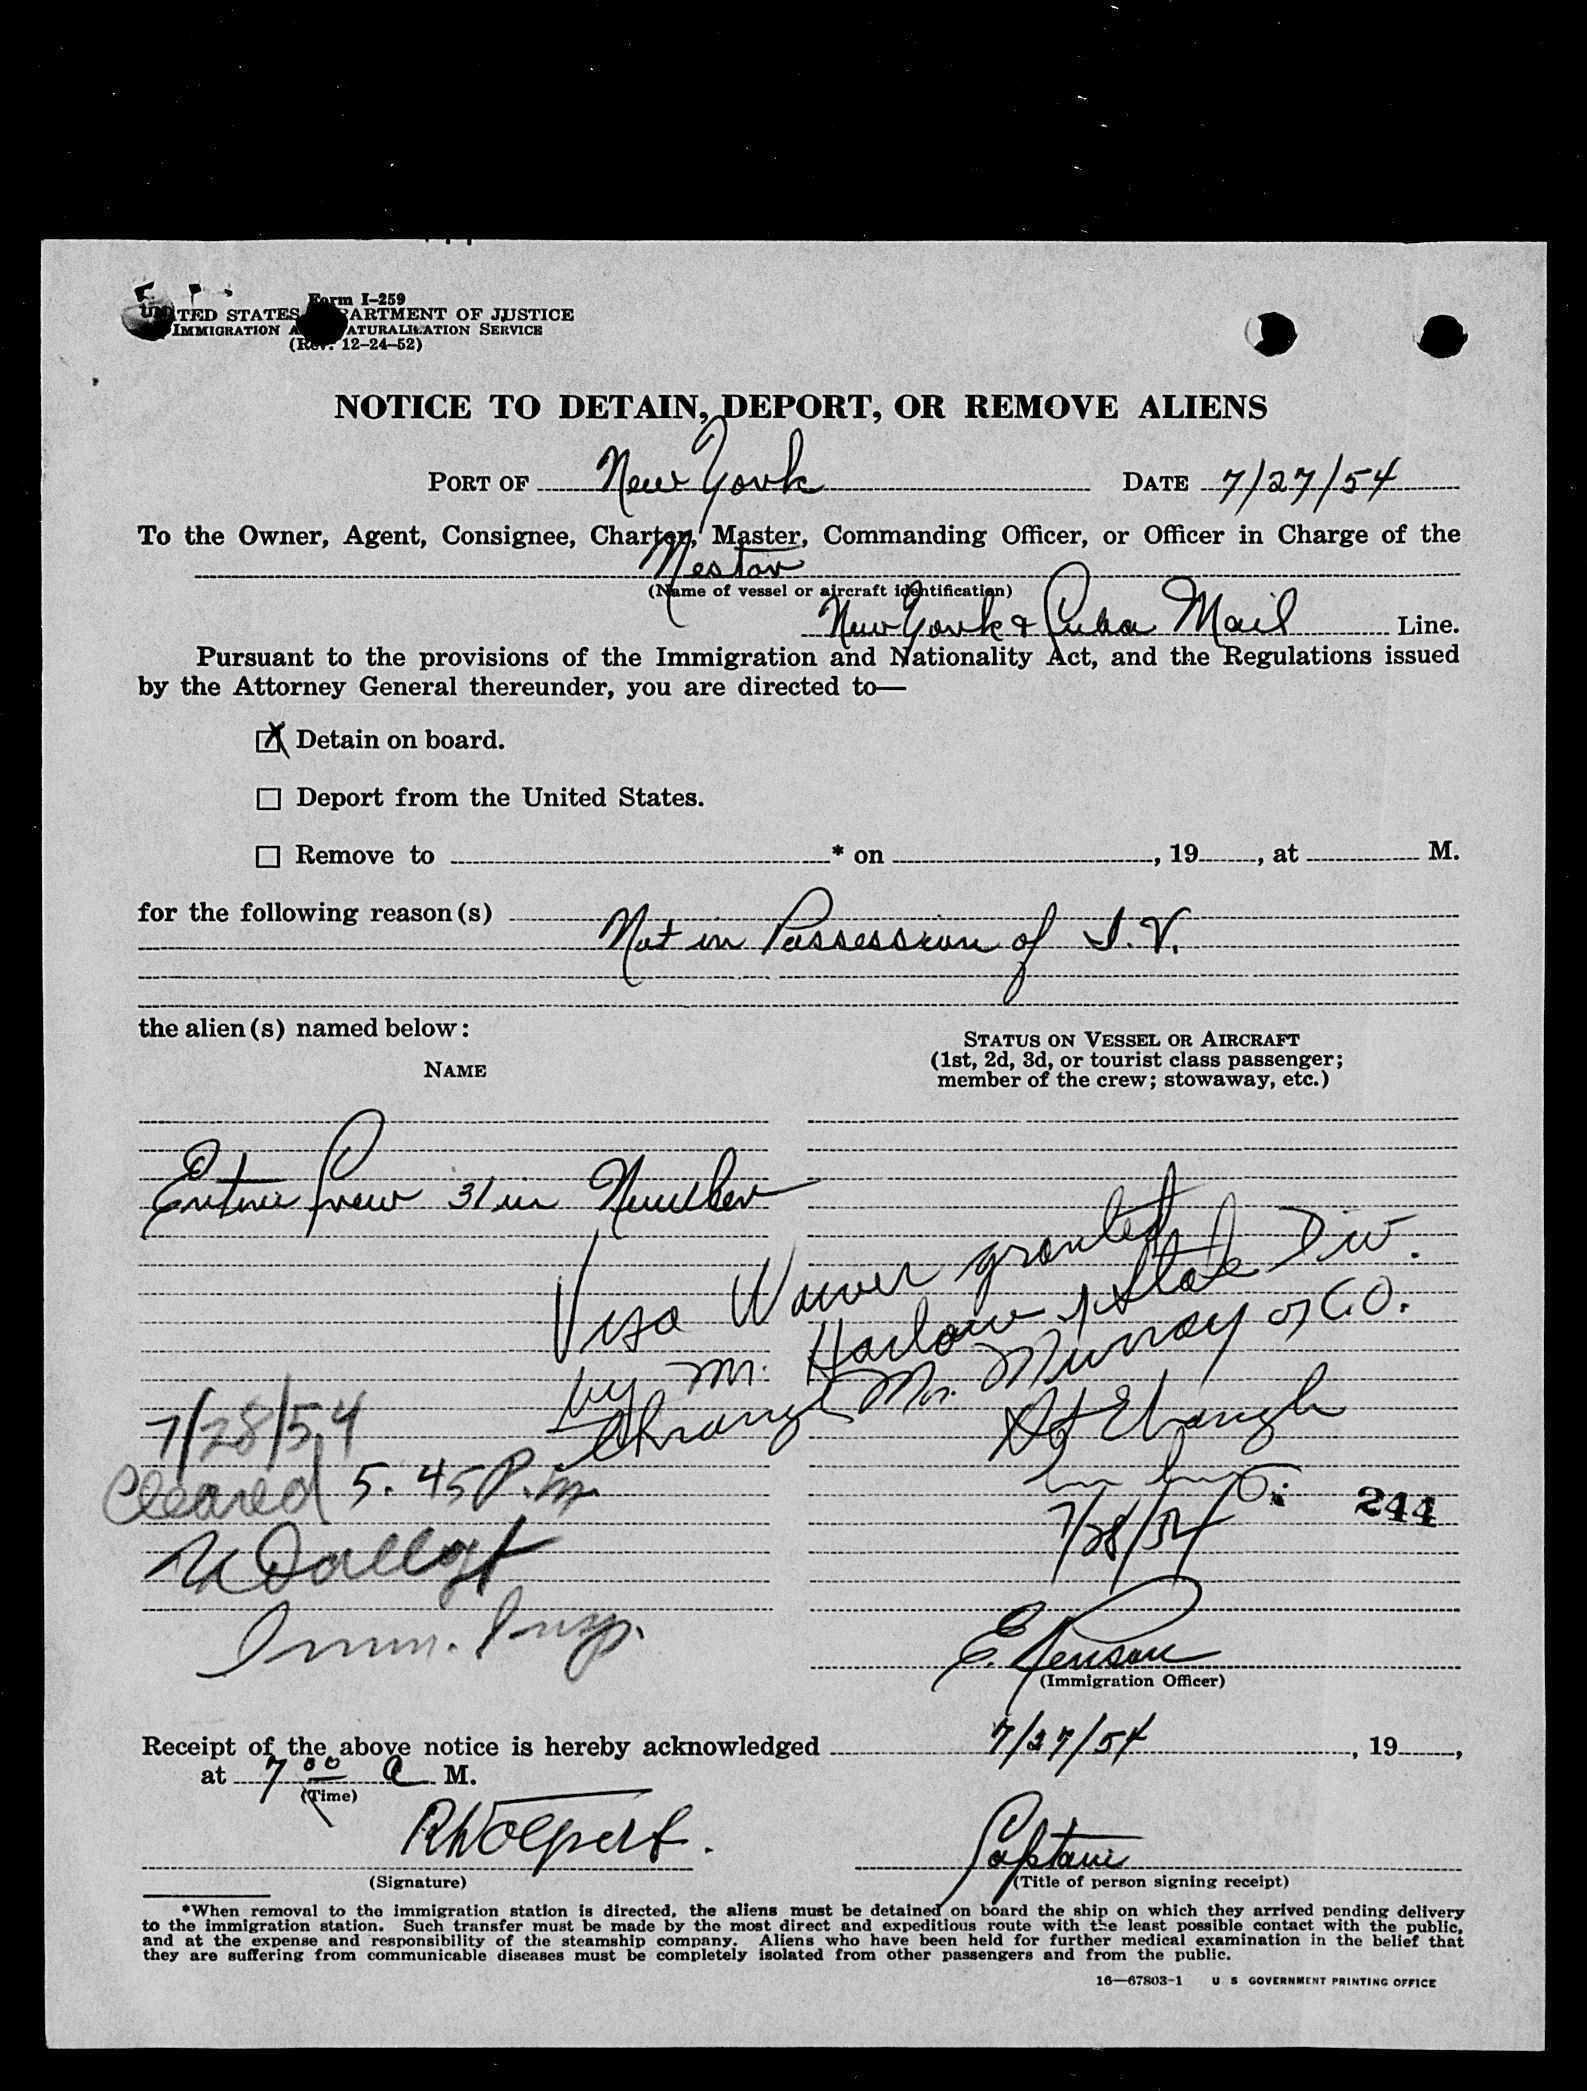 Form I-259
UNITED STATES DEPARTMENT OF JUSTICE
IMMIGRATION AND NATURALIZATION SERVICE
(Rev. 12-24-52)
NOTICE TO DETAIN, DEPORT, OR REMOVE ALIENS
PORT OF New York DATE 7/27/54
To the Owner, Agent, Consignee, Charter, Master, Commanding Officer, or Officer in Charge of the
Nestor
(Name of vessel or aircraft identification)
New York & Cuba Mail Line.
Pursuant to the provisions of the Immigration and Nationality Act, and the Regulations issued
by the Attorney General thereunder, you are directed to—
X Detain on board.
Deport from the United States.
Remove to * on , 19 , at M.
for the following reason(s)
Not in Possession of I.V.
the alien(s) named below:
NAME
STATUS ON VESSEL OR AIRCRAFT
(1st, 2d, 3d, or tourist class passenger;
member of the crew; stowaway, etc.)
Entire Crew 31 in Number
Visa Waiver granted
by Mr. Harlow of State Div.
through Mr. Murray of C.O.
7/28/54
Cleared 5.45 P.m.
Imm. Insp.
7/28/54
244
E. Jenson
(Immigration Officer)
Receipt of the above notice is hereby acknowledged 7/27/54, 19 ,
at 7 00 A M.
(Time)
R Wolpert.
Captain
(Signature)
(Title of person signing receipt)
*When removal to the immigration station is directed, the aliens must be detained on board the ship on which they arrived pending delivery
to the immigration station. Such transfer must be made by the most direct and expeditious route with the least possible contact with the public,
and at the expense and responsibility of the steamship company. Aliens who have been held for further medical examination in the belief that
they are suffering from communicable diseases must be completely isolated from other passengers and from the public.
16—67803-1 U S GOVERNMENT PRINTING OFFICE